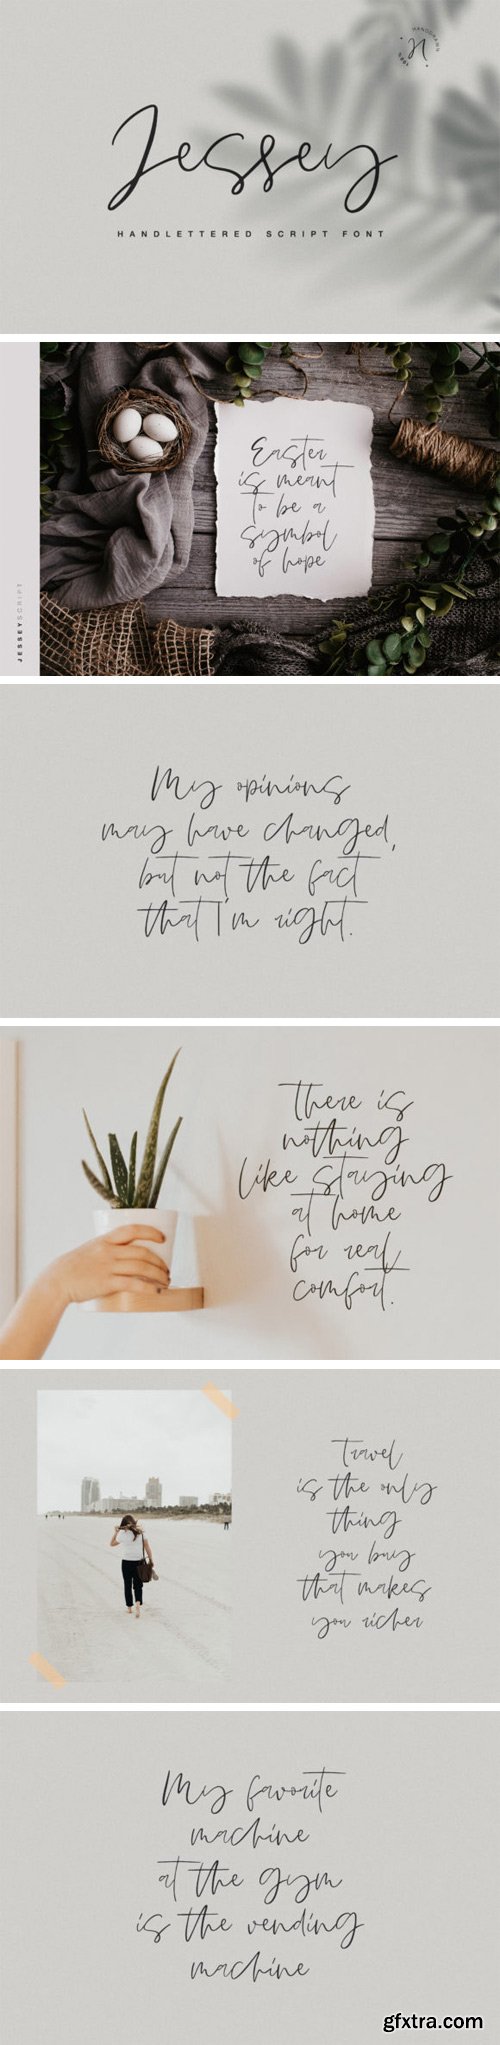 Jessey
HANDLETTERED SCRIPT FONT
HANDDRAWN
Easter
is meant
to be a
symbol
of hope
JESSEYSCRIPT
My opinions
may have changed,
but not the fact
that I'm right.
There is
nothing
like staying
at home
for real
comfort.
Travel
is the only
thing
you buy
that makes
you richer
My favorite
machine
at the gym
is the vending
machine
gfxtra.com